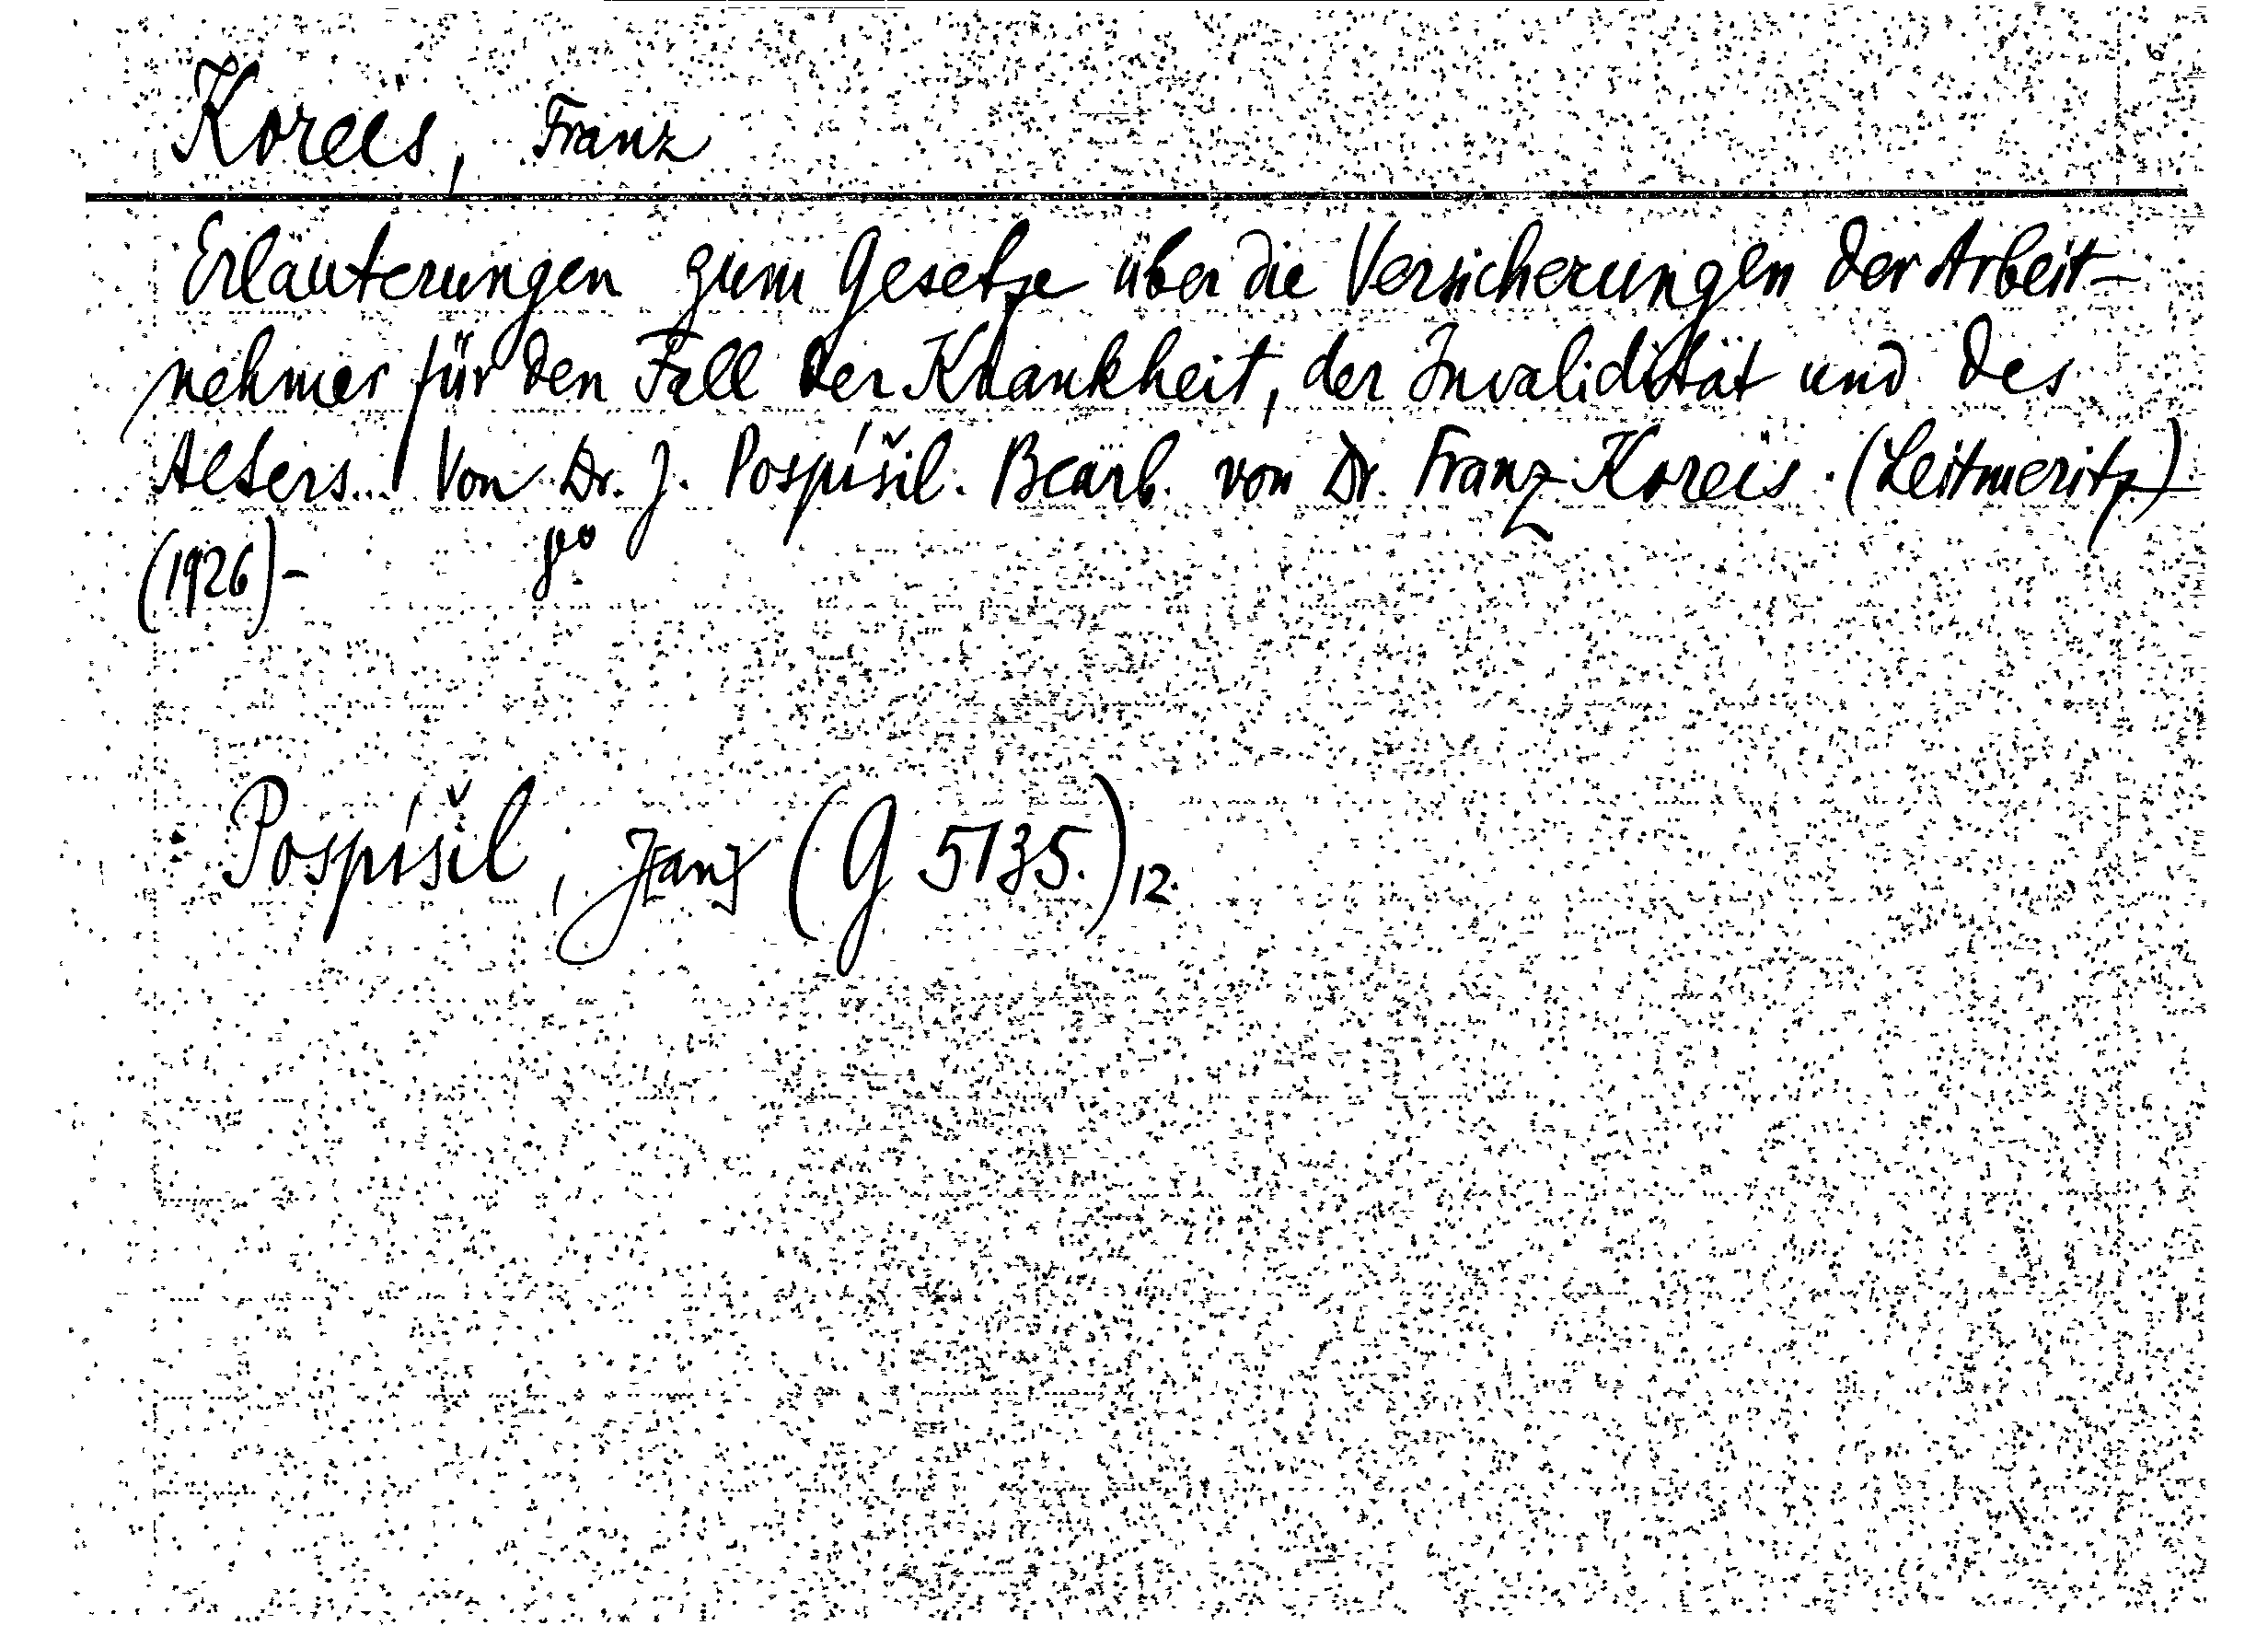 Koreis, Franz
Erläuterungen zum Gesetze über die Versicherungen der Arbeit-
nehmer für den Fall der Krankheit, der Invalidität und des
Alters. Von Dr. J. Pospíšil. Bearb. von Dr. Franz Koreis. (Leitmeritz)
(1926)- 8°
Pospíšil, (G 5135.) 12.